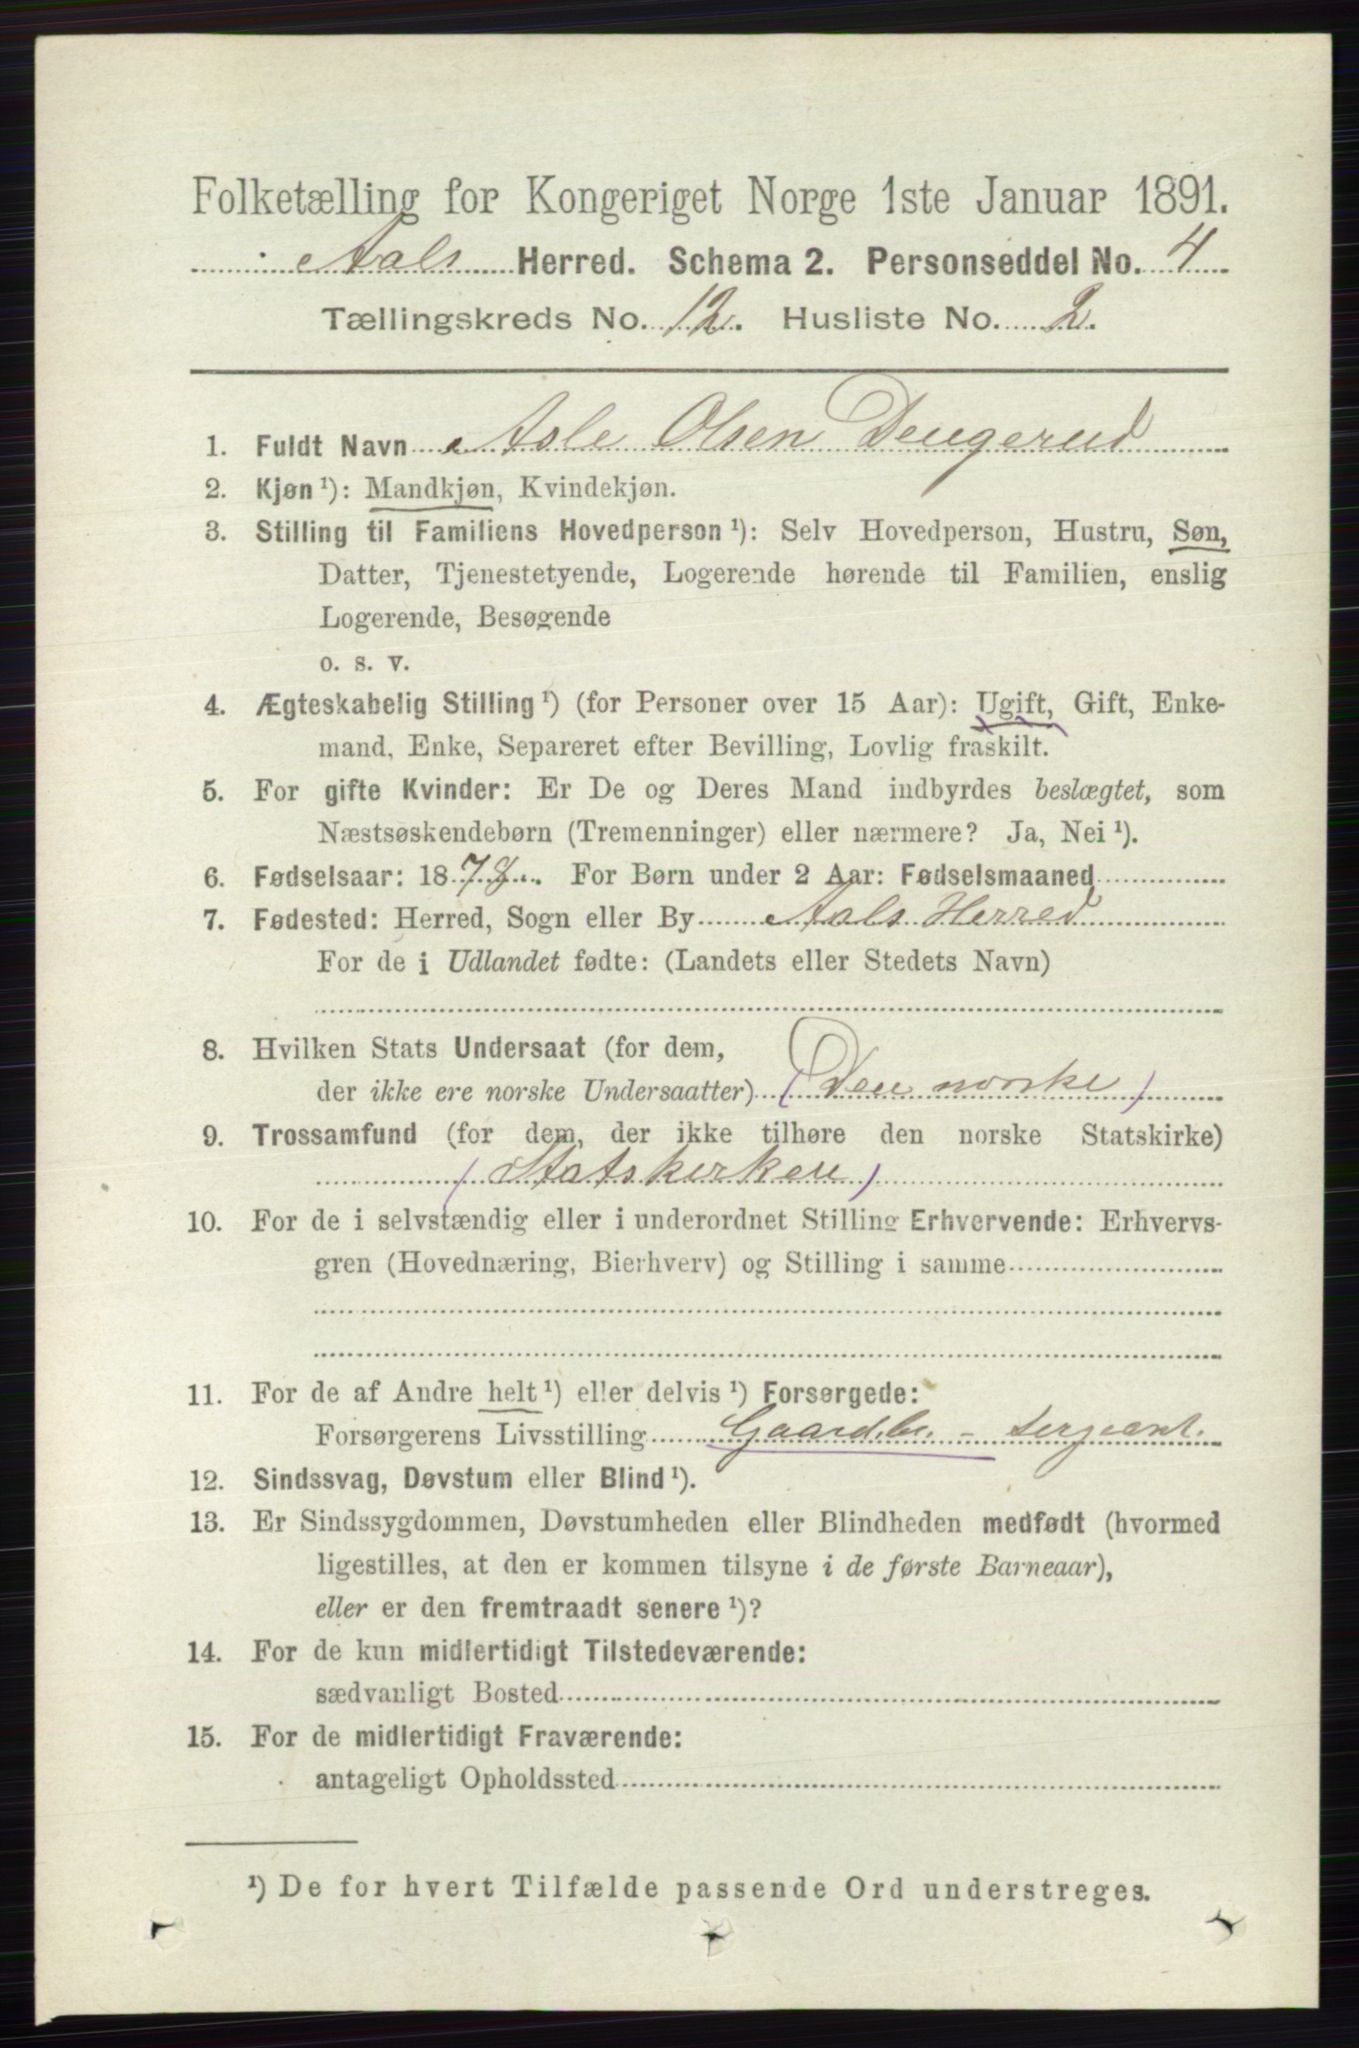 Folketælling for Kongeriget Norge 1ste Januar 1891.
Aals Herred. Schema 2. Personseddel No. 4
Tællingskreds No. 12. Husliste No. 2.
1. Fuldt Navn Asle Olsen Dengerud
2. Kjøn ¹): Mandkjøn, Kvindekjøn.
3. Stilling til Familiens Hovedperson ¹): Selv Hovedperson, Hustru, Søn,
Datter, Tjenestetyende, Logerende hørende til Familien, enslig
Logerende, Besøgende
o. s. v.
4. Ægteskabelig Stilling ¹) (for Personer over 15 Aar): Ugift, Gift, Enke-
mand, Enke, Separeret efter Bevilling, Lovlig fraskilt.
5. For gifte Kvinder: Er De og Deres Mand indbyrdes beslægtet, som
Næstsøskendebørn (Tremenninger) eller nærmere? Ja, Nei ¹).
6. Fødselsaar: 18 For Børn under 2 Aar: Fødselsmaaned
7. Fødested: Herred, Sogn eller By Aals Herred
For de i Udlandet fødte: (Landets eller Stedets Navn)
8. Hvilken Stats Undersaat (for dem,
der ikke ere norske Undersaatter) (Den norske)
9. Trossamfund (for dem, der ikke tilhøre den norske Statskirke)
(Statskerken)
10. For de i selvstændig eller i underordnet Stilling Erhvervende: Erhvervs-
gren (Hovednæring, Bierhverv) og Stilling i samme
11. For de af Andre helt ¹) eller delvis ¹) Forsørgede:
Forsørgerens Livsstilling Gaardbr. - Sergeant.
12. Sindssvag, Døvstum eller Blind ¹).
13. Er Sindssygdommen, Døvstumheden eller Blindheden medfødt (hvormed
ligestilles, at den er kommen tilsyne i de første Barneaar),
eller er den fremtraadt senere ¹)?
14. For de kun midlertidigt Tilstedeværende:
sædvanligt Bosted
15. For de midlertidigt Fraværende:
antageligt Opholdssted
¹) De for hvert Tilfælde passende Ord understreges.